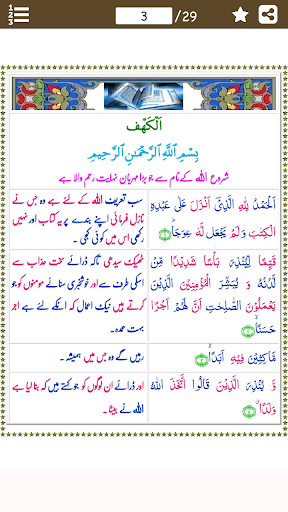 3 /29
اَلْكَهْف
بِسْمِ اللَّهِ الرَّحْمَٰنِ الرَّحِيمِ
شروع اللہ کے نام سے جو بڑا مہربان نہایت رحم والا ہے
اَلْحَمْدُ لِلّٰهِ الَّذِيْٓ اَنْزَلَ عَلٰى عَبْدِهِ
الْكِتٰبَ وَلَمْ يَجْعَلْ لَّهٗ عِوَجًا
سب تعریف اللہ کے لئے ہے وہ جس نے
نازل فرمائی اپنے بندے پر یہ کتاب اور نہیں
رکھی اس میں کوئی کجی ۔
قَيِّمًا لِّيُنْذِرَ بَاْسًا شَدِيْدًا مِّنْ
لَّدُنْهُ وَ يُبَشِّرَ الْمُؤْمِنِيْنَ الَّذِيْنَ
يَعْمَلُوْنَ الصّٰلِحٰتِ اَنَّ لَهُمْ اَجْرًا
حَسَنًا
ٹھیک سیدھی تاکہ ڈرائے سخت عذاب سے
اسکی طرف سے اور خوشخبری سنائے مومنوں کو جو
کرتے ہیں نیک اعمال کہ انکے لئے ہے اجر
بہت عمدہ۔
مَّاكِثِيْنَ فِيْهِ اَبَدًا
رہیں گے وہ جس میں ہمیشہ ۔
وَّ يُنْذِرَ الَّذِيْنَ قَالُوا اتَّخَذَ اللّٰهُ
وَلَدًا
اور ڈرائے ان لوگوں کو جو کہتے ہیں کہ بنا لیا ہے
اللہ نے بیٹا ۔